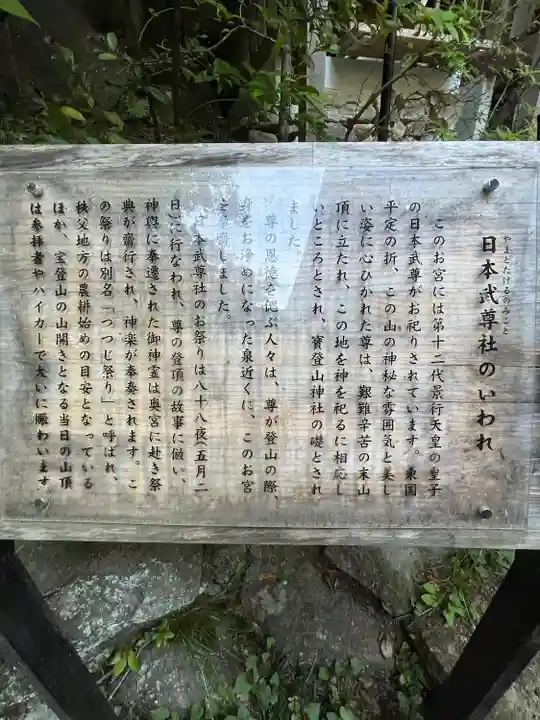 やまとたけるのみこと
日本武尊社のいわれ
このお宮には第十二代景行天皇の皇子
の日本武尊がお祀りされています。東国
平定の折、この山の神秘な雰囲気と美し
い姿に心ひかれた尊は、艱難辛苦の末山
頂に立たれ、この地を神を祀るに相応し
いところとされ、寳登山神社の礎とされ
ました。
尊の恩徳を偲ぶ人々は、尊が登山の際、
身をお浄めになった泉近くに、このお宮
を しました。
日本武尊社のお祭りは八十八夜(五月二
日)に行なわれ、尊の登頂の故事に倣い、
神輿に奉遷された御神霊は奥宮に赴き祭
典が齋行され、神楽が奉奏されます。こ
の祭りは別名「つつじ祭り」と呼ばれ、
秩父地方の農耕始めの目安となっている
ほか、宝登山の山開きとなる当日の山頂
は参拝者やハイカーで大いに賑わいます